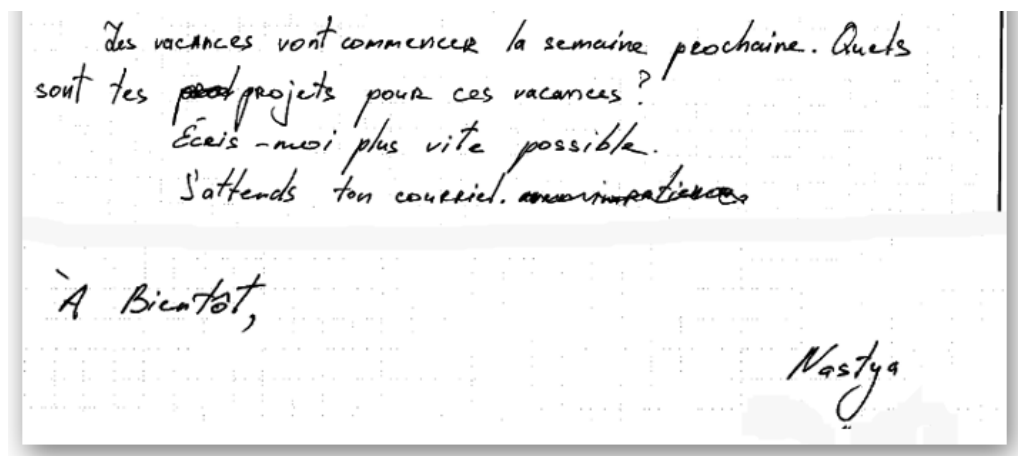 Les vacances vont commencer la semaine prochaine. Quels
sont tes projets pour ces vacances?
Écris-moi plus vite possible.
J'attends ton courriel.
À Bientôt,
Nastya